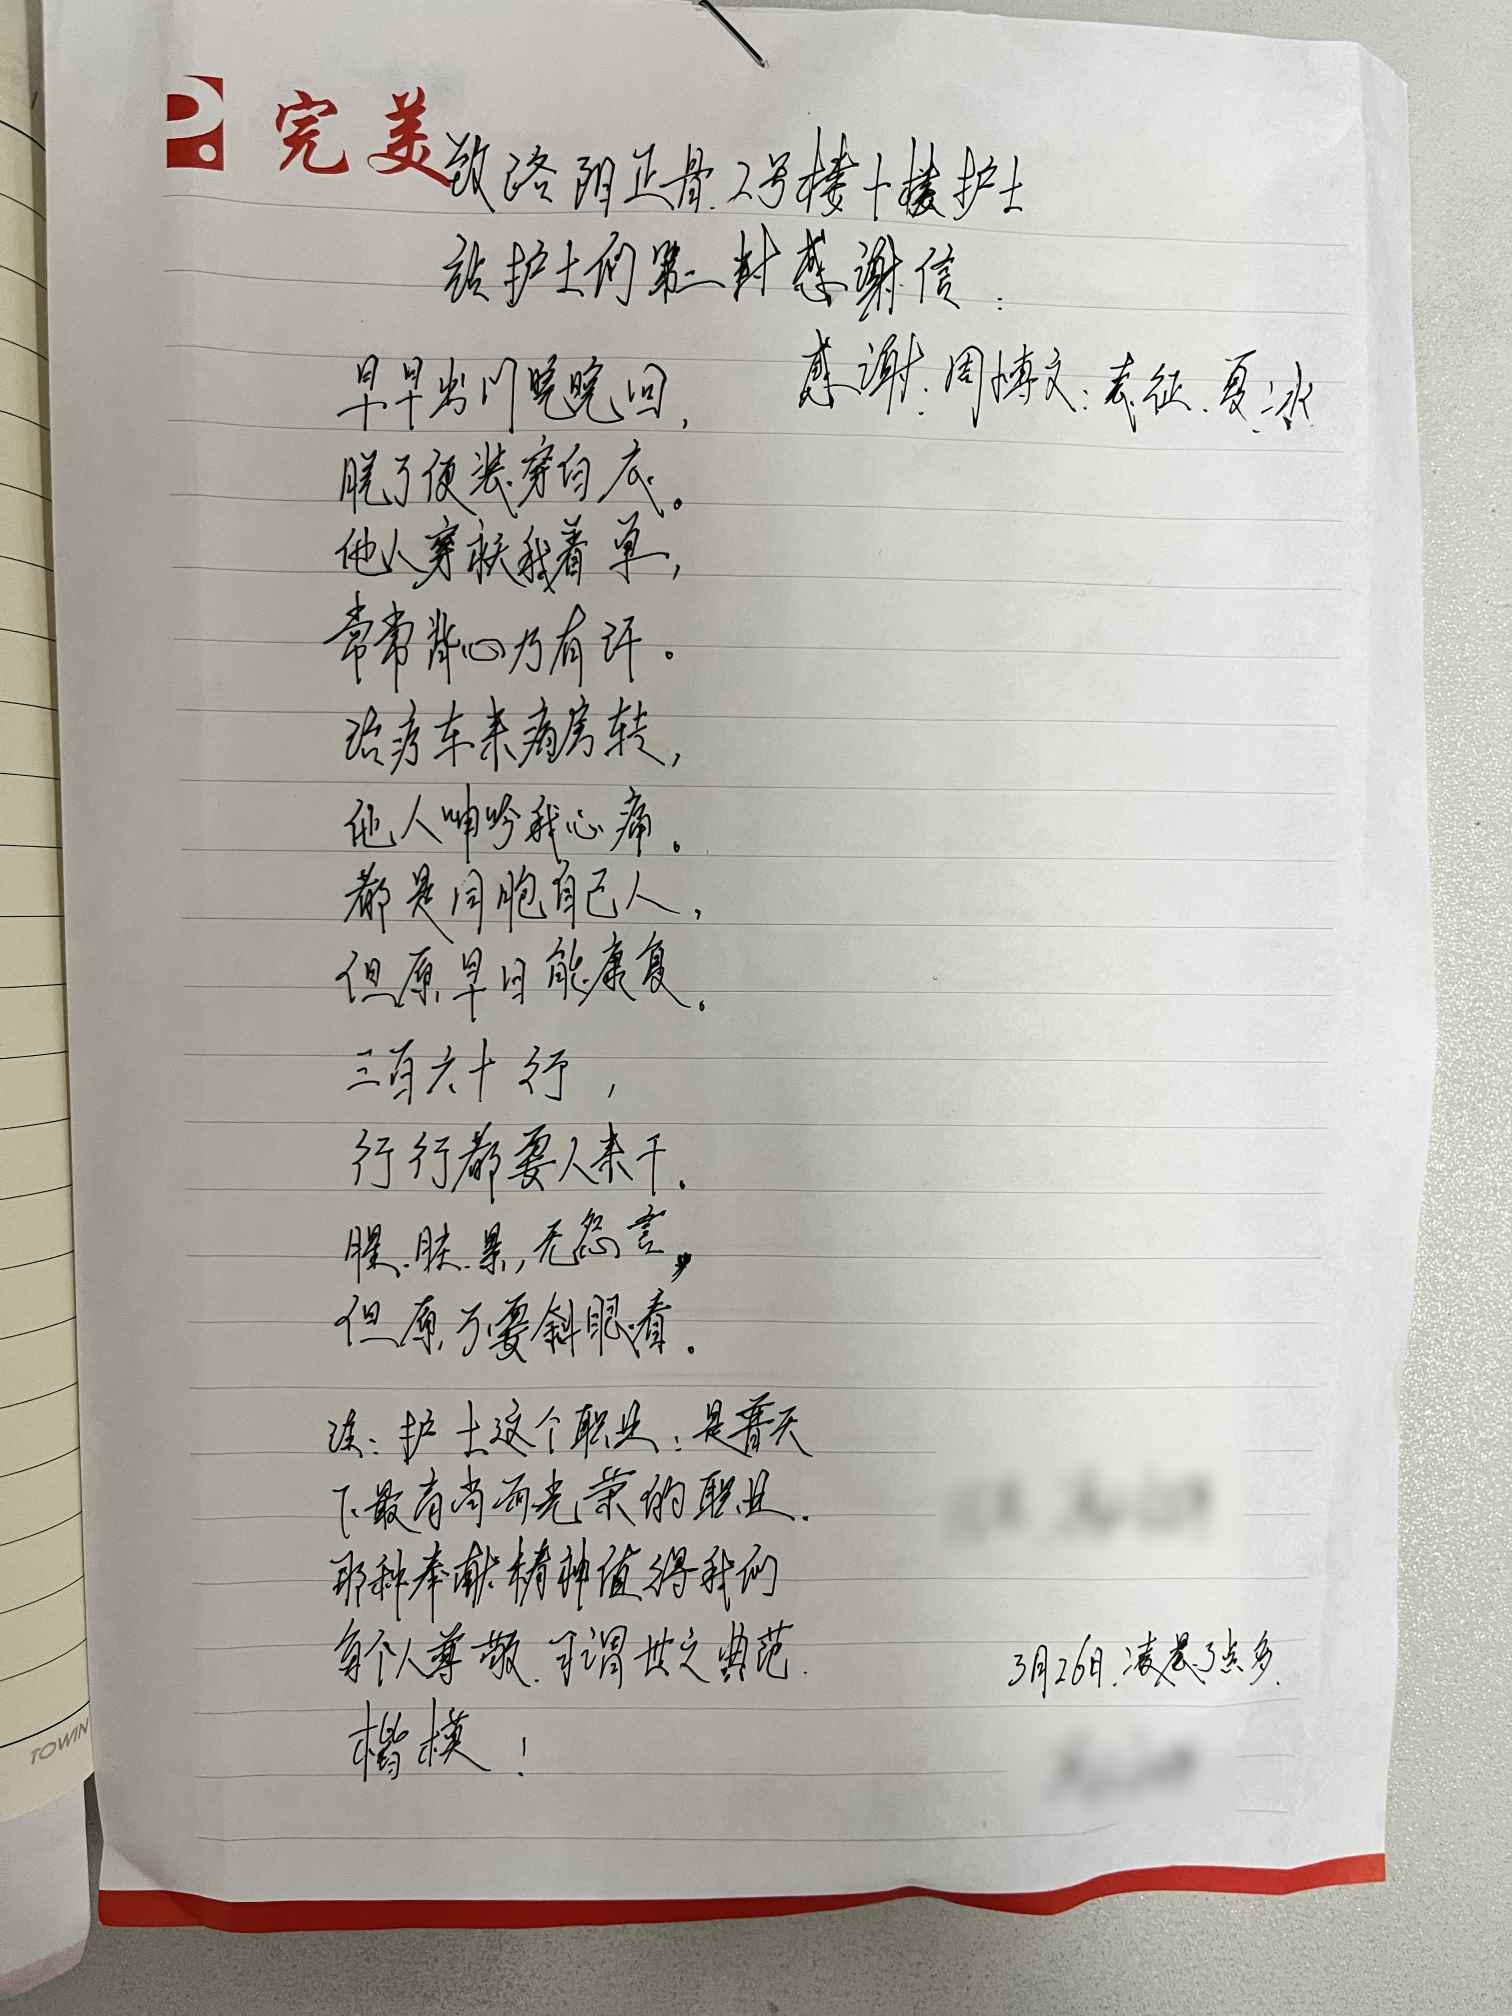 完美
致洛阳正骨2号楼十楼护士
站护士们第二封感谢信:
感谢:周博文:袁征、夏冰
早早出门晚晚回,
脱了便装穿白衣。
他人穿袄我着单,
常常背心乃有汗。
治疗车来病房转,
他人呻吟我心痛。
都是同胞自己人,
但原早日能康复。
三百六十行,
行行都要人来干.
腥.脏.累,无怨言,
但原不要斜眼看.
注:护士这个职业:是普天
下最高尚而光荣的职业.
那种奉献精神值得我们
每个人尊敬.可谓世之典范.
楷模!
3月26日.凌晨3点多.
TOWIN